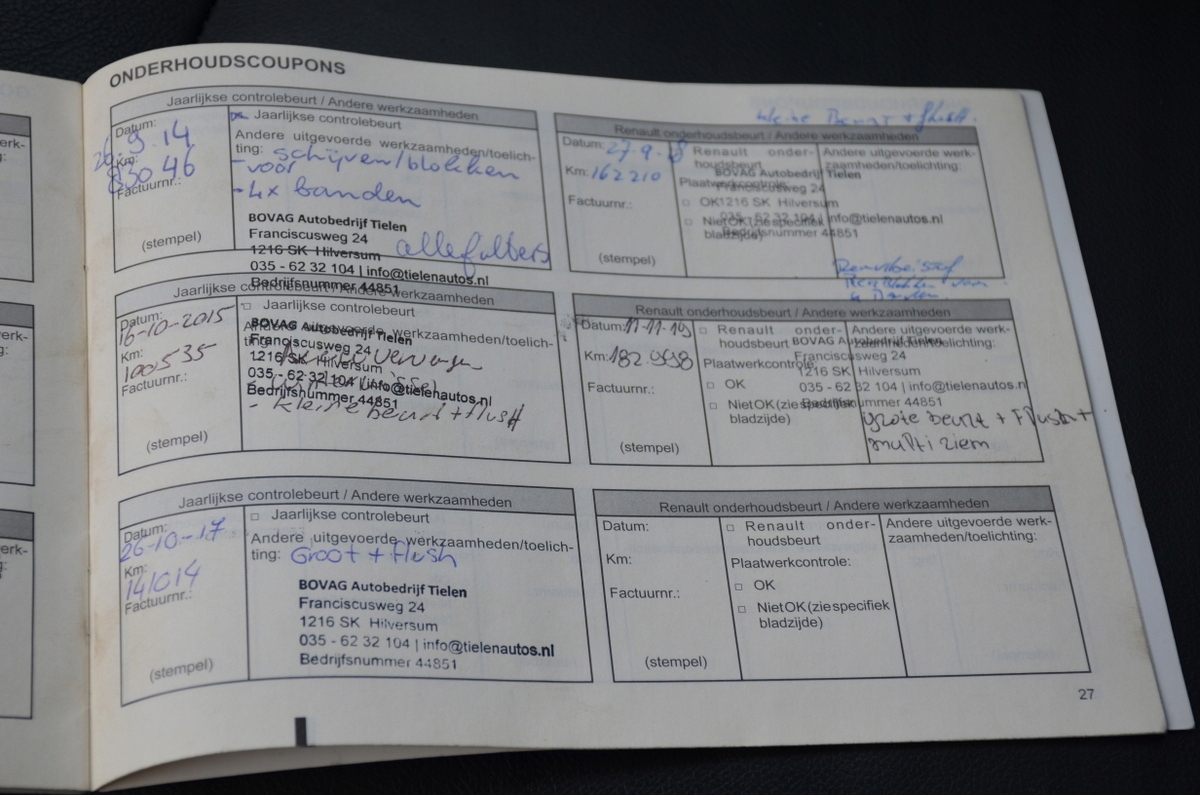 ONDERHOUDSCOUPONS
Jaarlijkse controlebeurt / Andere werkzaamheden
Datum:
26.9.14
Km:
83046
Factuurnr.:
(stempel)
Jaarlijkse controlebeurt
Andere uitgevoerde werkzaamheden/toelich-
ting: schijven/blokken
- voor
- 4x banden
BOVAG Autobedrijf Tielen
Franciscusweg 24
1216 SK Hilversum
035 - 62 32 104 | info@tielenautos.nl
Bedrijfsnummer 44851
Jaarlijkse controlebeurt / Andere werkzaamheden
Datum:
16-10-2015
Km:
100535
Factuurnr.:
(stempel)
□ Jaarlijkse controlebeurt
Andere uitgevoerde werkzaamheden/toelich-
ting:
BOVAG Autobedrijf Tielen
Franciscusweg 24
1216 SK Hilversum
035 - 62 32 104 | info@tielenautos.nl
Bedrijfsnummer 44851
- kleine beurt + flush
Jaarlijkse controlebeurt / Andere werkzaamheden
Datum:
26-10-17
Km:
141014
Factuurnr.:
(stempel)
□ Jaarlijkse controlebeurt
Andere uitgevoerde werkzaamheden/toelich-
ting: Groot + flush
BOVAG Autobedrijf Tielen
Franciscusweg 24
1216 SK Hilversum
035 - 62 32 104 | info@tielenautos.nl
Bedrijfsnummer 44851
kleine Beurt + flush.
Renault onderhoudsbeurt / Andere werkzaamheden
Datum: 27-9-18
Km: 162210
Factuurnr.:
(stempel)
□ Renault onder-
houdsbeurt
Plaatwerkcontrole:
□ OK
□ Niet OK (zie specifiek
bladzijde)
Andere uitgevoerde werk-
zaamheden/toelichting:
BOVAG Autobedrijf Tielen
Franciscusweg 24
1216 SK Hilversum
035 - 62 32 104 | info@tielenautos.nl
Bedrijfsnummer 44851
Renault onderhoudsbeurt / Andere werkzaamheden
Datum: 11-11-19
Km: 182.998
Factuurnr.:
(stempel)
□ Renault onder-
houdsbeurt
Plaatwerkcontrole:
□ OK
□ Niet OK (zie specifiek
bladzijde)
Andere uitgevoerde werk-
zaamheden/toelichting:
BOVAG Autobedrijf Tielen
Franciscusweg 24
1216 SK Hilversum
035 - 62 32 104 | info@tielenautos.n
Bedrijfsnummer 44851
grote beurt + Flush +
multi riem
Renault onderhoudsbeurt / Andere werkzaamheden
Datum:
Km:
Factuurnr.:
(stempel)
□ Renault onder-
houdsbeurt
Plaatwerkcontrole:
□ OK
□ Niet OK (zie specifiek
bladzijde)
Andere uitgevoerde werk-
zaamheden/toelichting:
27